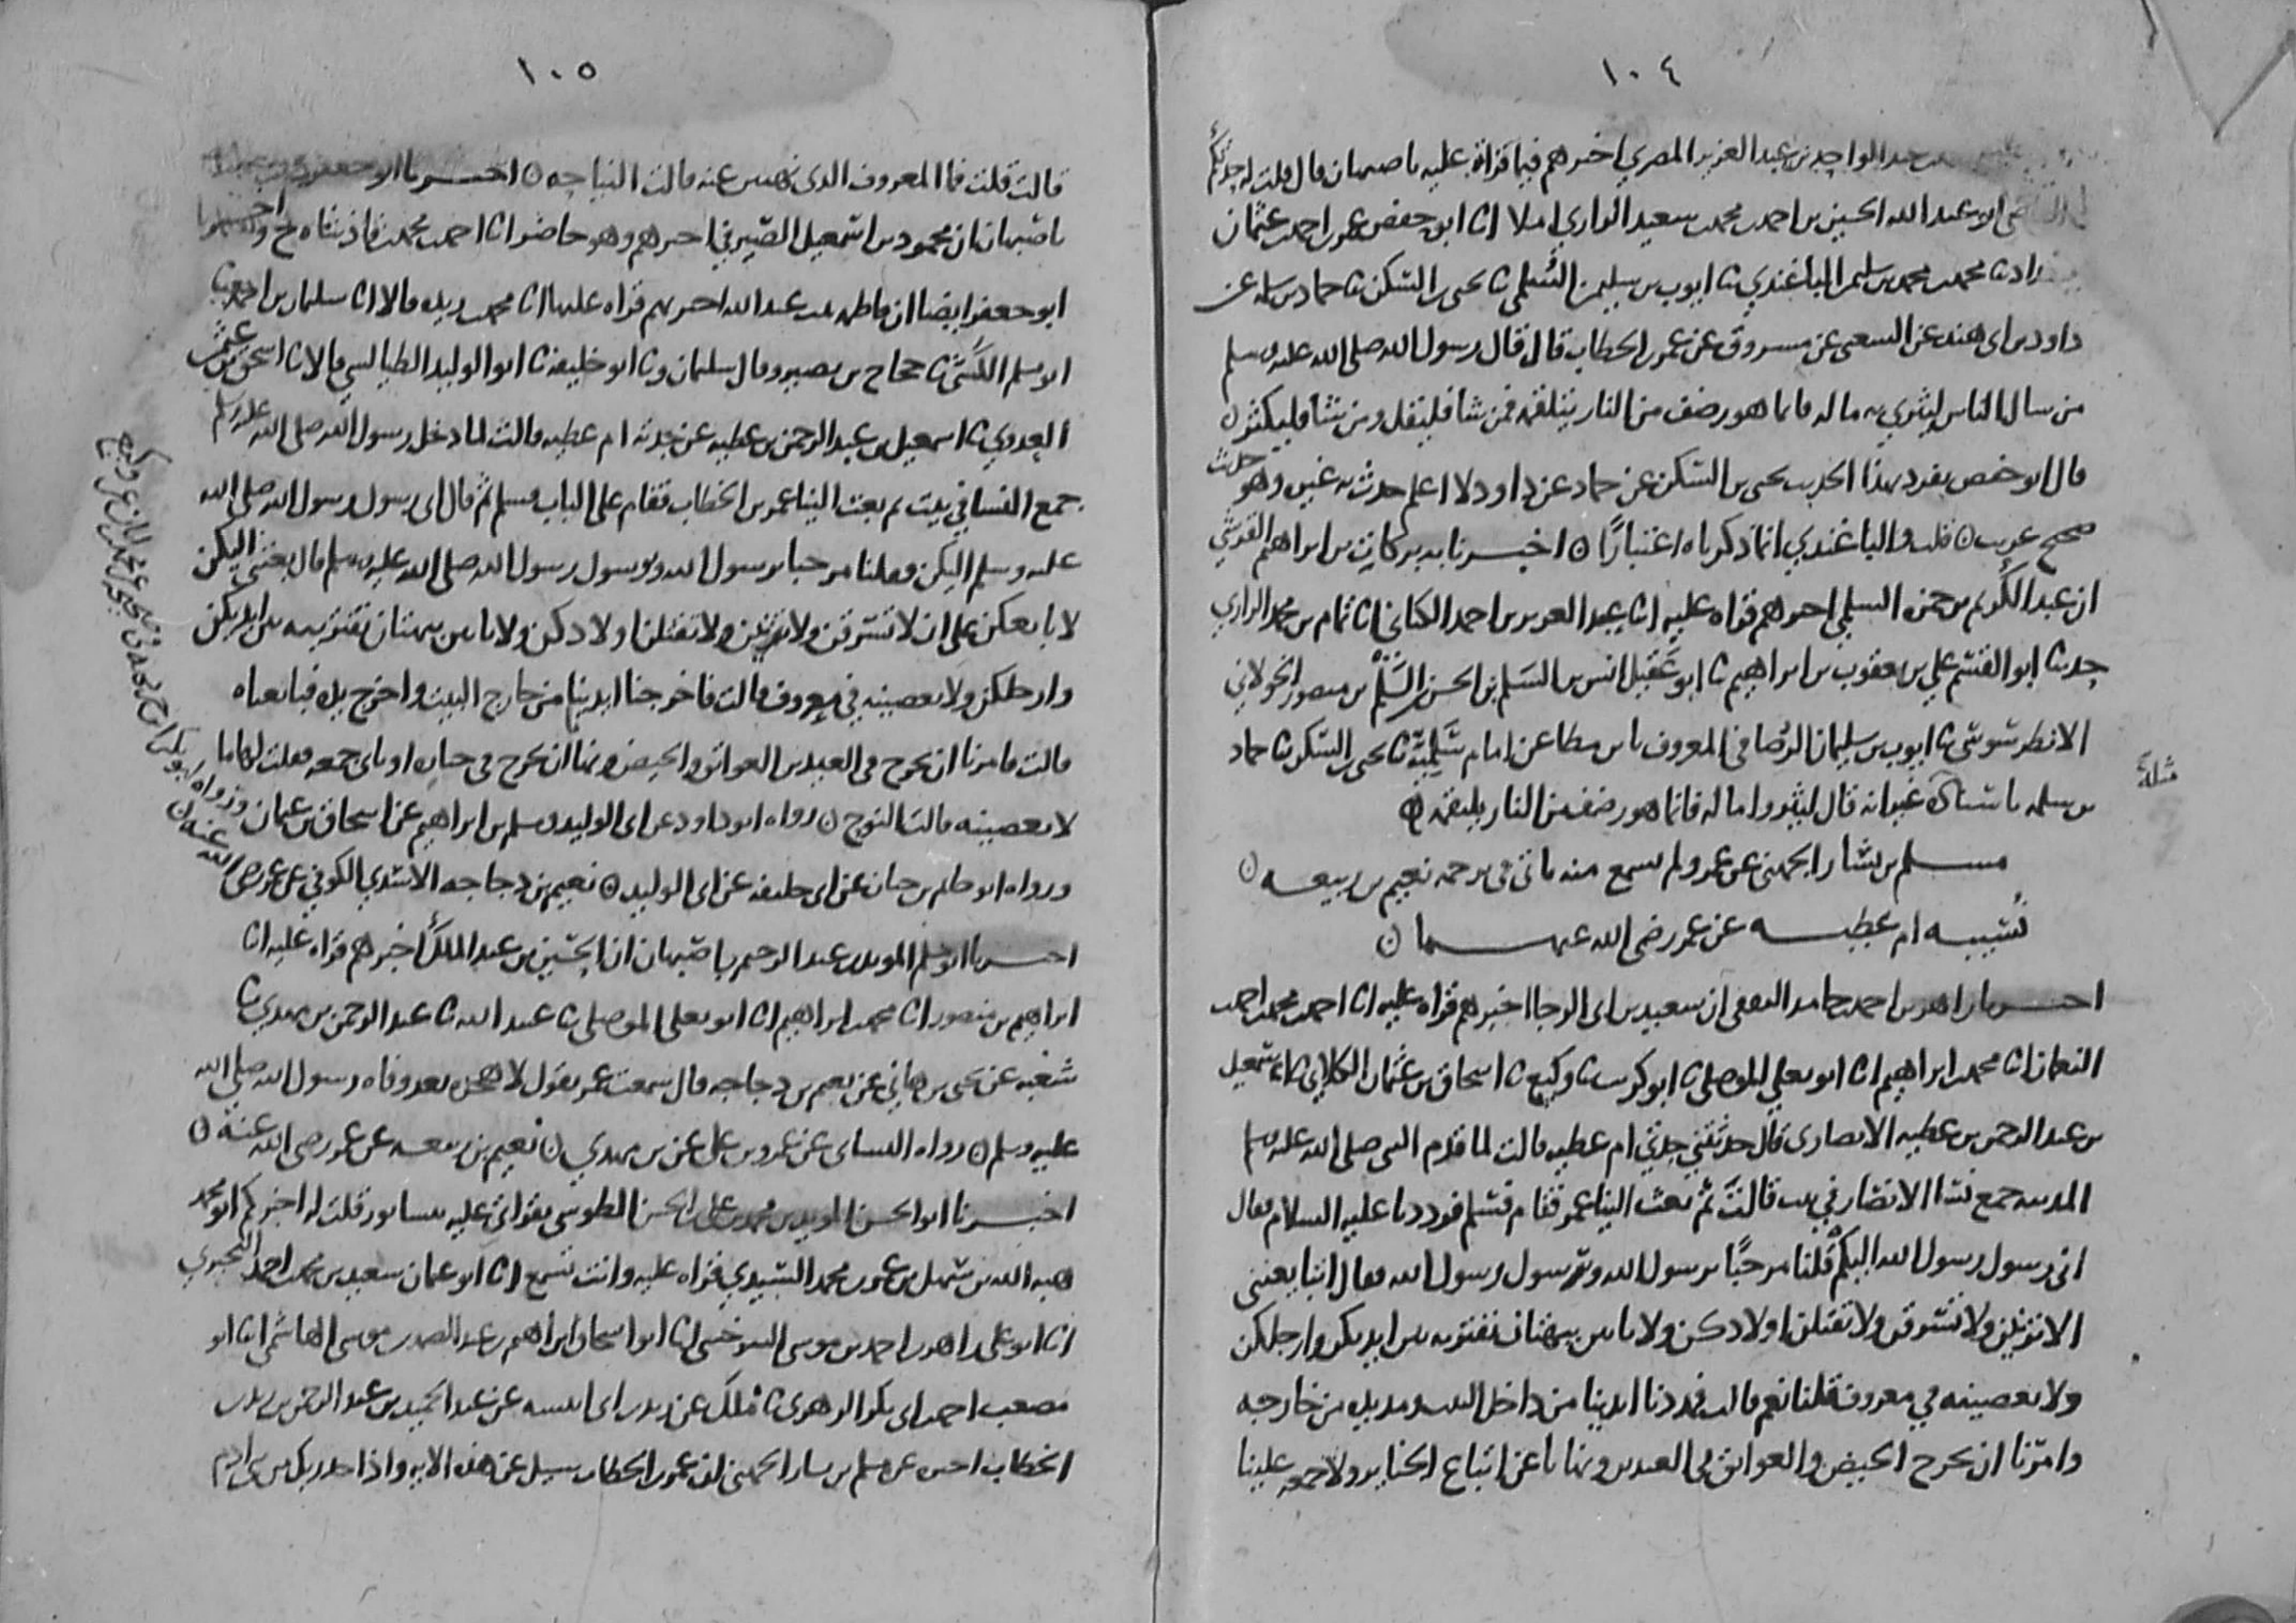 ١٠٤
عبد الواحد بن عبد العزيز المصري اخبرهم فيما قراة عليه باصبهان قال قلت له حدثكم
ابو عبد الله الحسين بن احمد بن محمد بن سعيد الرازي املا انا ابو حفص عمر بن احمد بن عثمان
نا محمد بن محمد بن سليمن الباغندي نا ايوب بن سليمن السلمي نا يحيى بن السكن نا حماد بن سلمه عن
داود بن ابي هند عن الشعبي عن مسروق عن عمر بن الخطاب قال قال رسول الله صلى الله عليه وسلم
من سال الناس ليثري به ماله فانما هو رضف من النار يتلقمه فمن شا فليقل ومن شا فليكثر ن
قال ابو حفص تفرد بهذا الحديث يحيى بن السكن عن حماد عن داود لا اعلم حدث به غيره وهو حديث
صحيح غريب ن قلت والباغندي انما ذكرناه اعتبارًا ن اخبرنا بركات بن ابراهيم القرشي
ان عبد الكريم بن حمزه السلمي اخبرهم قراه عليه انا عبد العزيز بن احمد الكتاني انا تمام بن محمد الرازي
حدثنا ابو القسم علي بن يعقوب بن ابراهيم نا ابو عقيل انس بن السلم بن الحسن بن السلم بن منصور الخولاني
الانطرسوسي نا ايوب بن سليمان الرصافي المعروف بابن مطاعن امام سلمية نا يحيى بن السكن نا حماد
بن سلمه باسناده غير انه قال ليثروا ماله فانما هو رضف من النار يلتقمه ن
مثله
مسلم بن يسار الجهني عن عمر ولم يسمع منه ياتي في ترجمه نعيم بن ربيعه ن
نسيبه ام عطيه عن عمر رضي الله عنهما ن
اخبرنا زاهر بن احمد بن حامد الثقفي ان سعيد بن ابي الرجا اخبرهم قراه عليه انا احمد بن محمد بن احمد
النعمان انا محمد بن ابراهيم انا ابو يعلى الموصلي نا ابو كريب نا وكيع نا اسحاق بن عثمان الكلابي نا اسمعيل
بن عبد الرحمن بن عطيه الانصاري قال حدثتني جدتي ام عطيه قالت لما قدم النبي صلى الله عليه وسلم
المدينه جمع نسا الانصار في بيت قالت ثم بعث الينا عمر فقام فسلم فرددنا عليه السلام فقال
اني رسول رسول الله اليكم قلنا مرحبًا برسول الله وبرسول رسول الله فقال اتبايعنني
الا تزنين ولا تسرقن ولا تقتلن اولادكن ولا تاتين ببهتان تفترينه بين ايديكن وارجلكن
ولا تعصينه في معروف قلنا نعم قالت فمددنا ايدينا من داخل البيت ومد يده من خارجه
وامرنا ان نخرج الحيض والعواتق في العيدين ونهانا عن اتباع الجنايز ولا جمعه علينا
١٠٥
قالت قلت فما المعروف الذي نهيتن عنه قالت النياحه ن اخبرنا ابو جعفر محمد بن
باصبهان ان محمود بن اسمعيل الصيرفي اخبرهم وهو حاضر انا احمد بن محمد بن فاذشاه ح واخبرنا
ابو جعفر ايضا ان فاطمه بنت عبد الله اخبرتهم قراه عليها انا محمد بن ريذه قالا انا سليمان بن احمد نا
ابو مسلم الكشي نا حجاج بن نصير وقال سليمان ونا ابو خليفه نا ابو الوليد الطيالسي قالا نا اسحق بن عثمن
العدوي نا اسمعيل بن عبد الرحمن بن عطيه عن جدته ام عطيه قالت لما دخل رسول الله صلى الله عليه وسلم
جمع النسا في بيت ثم بعث الينا عمر بن الخطاب فقام على الباب فسلم ثم قال اني رسول رسول الله صلى الله
عليه وسلم اليكن فقلنا مرحبا برسول الله وبرسول رسول الله صلى الله عليه وسلم قال بعثني اليكن
لابايعكن على ان لا تسرقن ولا تزنين ولا تقتلن اولادكن ولا تاتين ببهتان تفترينه بين ايديكن
وارجلكن ولا تعصينه في معروف قالت فاخرجنا ايدينا من خارج البيت واخرج يده فبايعناه
قالت فامرنا ان نخرج في العيدين العواتق والحيض ونهانا ان نخرج في جنازه او ناتي جمعه فقلت لها ما
لا نعصينه قالت النوح ن رواه ابو داود عن ابي الوليد ومسلم بن ابراهيم عن اسحاق بن عثمان
ورواه ابو حاتم بن حبان عن ابي خليفه عن ابي الوليد ن نعيم بن دجاجه الاسدي الكوفي عن عمر رضي الله عنه ن
اخبرنا ابو مسلم المويد بن عبد الرحيم باصبهان ان الحسين بن عبد الملك اخبرهم قراه عليه انا
ابراهيم بن منصور انا محمد بن ابراهيم انا ابو يعلى الموصلي نا عبيد الله نا عبد الرحمن بن مهدي نا
شعبه عن يحيى بن هاني عن نعيم بن دجاجه قال سمعت عمر يقول لا هجره بعد وفاه رسول الله صلى الله
عليه وسلم ن رواه النساي عن عمرو بن علي عن بن مهدي ن نعيم بن ربيعه عن عمر رضي الله عنه ن
اخبرنا ابو الحسن المويد بن محمد بن علي بن الحسن الطوسي بقراتي عليه بنيسابور قلت له اخبركم ابو محمد
هبه الله بن سهل بن عمر بن محمد السيدي قراه عليه وانت تسمع انا ابو عثمان سعيد بن محمد بن احمد البحيري
انا ابو علي زاهر بن احمد بن موسى السرخسي انا ابو اسحاق ابراهيم بن عبد الصمد بن موسى الهاشمي انا ابو
مصعب احمد بن ابي بكر الزهري نا ملك عن زيد بن ابي انيسه عن عبد الحميد بن عبد الرحمن بن زيد بن
الخطاب اخبره عن مسلم بن يسار الجهني ان عمر بن الخطاب سيل عن هذه الايه واذ اخذ ربك من بني ادم